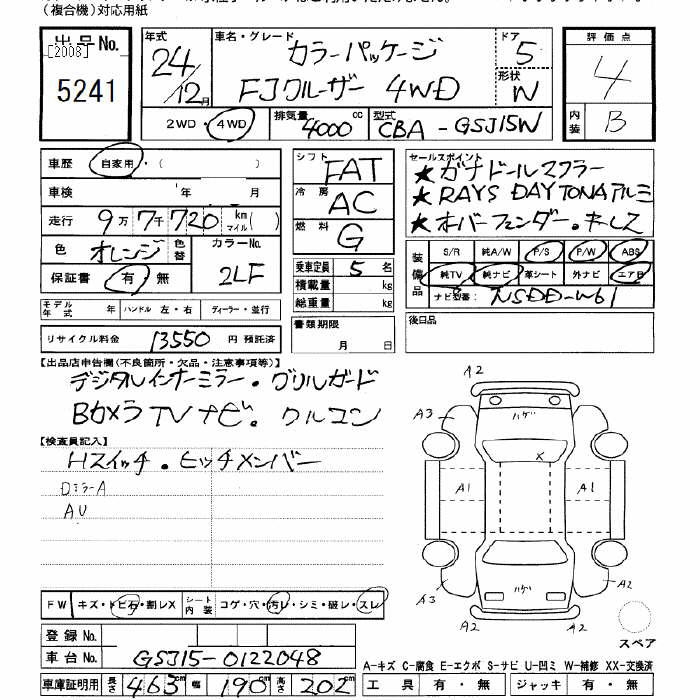 (複合機)対応用紙
出品No.
[2008]
5241
年式
24/12月
車名・グレード
カラーパッケージ
FJクルーザー 4WD
ドア
5
形状
W
評価点
4
内装
B
2WD・4WD
排気量
4000cc
型式
CBA-GSJ15W
車歴
自家用・( )
車検
年 月
走行
9万7千720 km マイル( )
色
オレンジ
色替
カラーNo.
2LF
保証書
有・無
シフト
FAT
冷房
AC
燃料
G
乗車定員 5名
積載量 kg
総重量 kg
書類期限
月 日
セールスポイント
★ガナドールマフラー
★RAYS DAYTONAアルミ
★オーバーフェンダー・キーレス
装備品
S/R 純A/W P/S P/W ABS
純TV 純ナビ 革シート 外ナビ エアB
ナビ型番: NSDD-W61
後日品
モデル年式 年 ハンドル 左・右 ディーラー・並行
リサイクル料金 13550円 預託済
【出品店申告欄(不良箇所・欠品・注意事項等)】
デジタルインナーミラー・グリルガード
BカメラTVナビ・クルコン
【検査員記入】
Hスイッチ・ヒッチメンバー
DミラーA
AU
FW キズ・トビ石・割レX
シート内装 コゲ・穴・汚レ・シミ・破レ・スレ
登録No.
車台No. GSJ15-0122048
車庫証明用 長さ 463cm 幅 190cm 高さ 202cm
A2
A3
ハゲ
A2
X
A1
A1
A3
ハゲ
A2
A2
スペア
A-キズ C-腐食 E-エクボ S-サビ U-凹ミ W-補修 XX-交換済
工具 有・無 ジャッキ 有・無